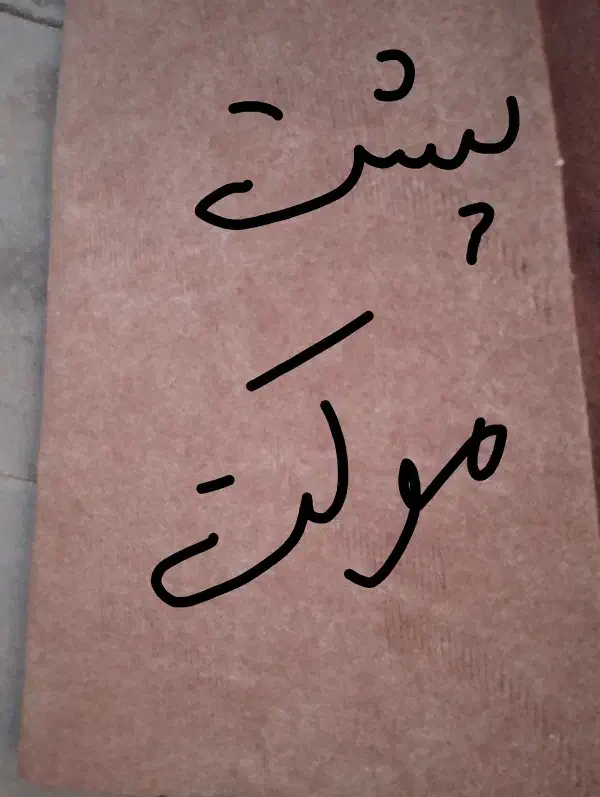 پشت
موکت